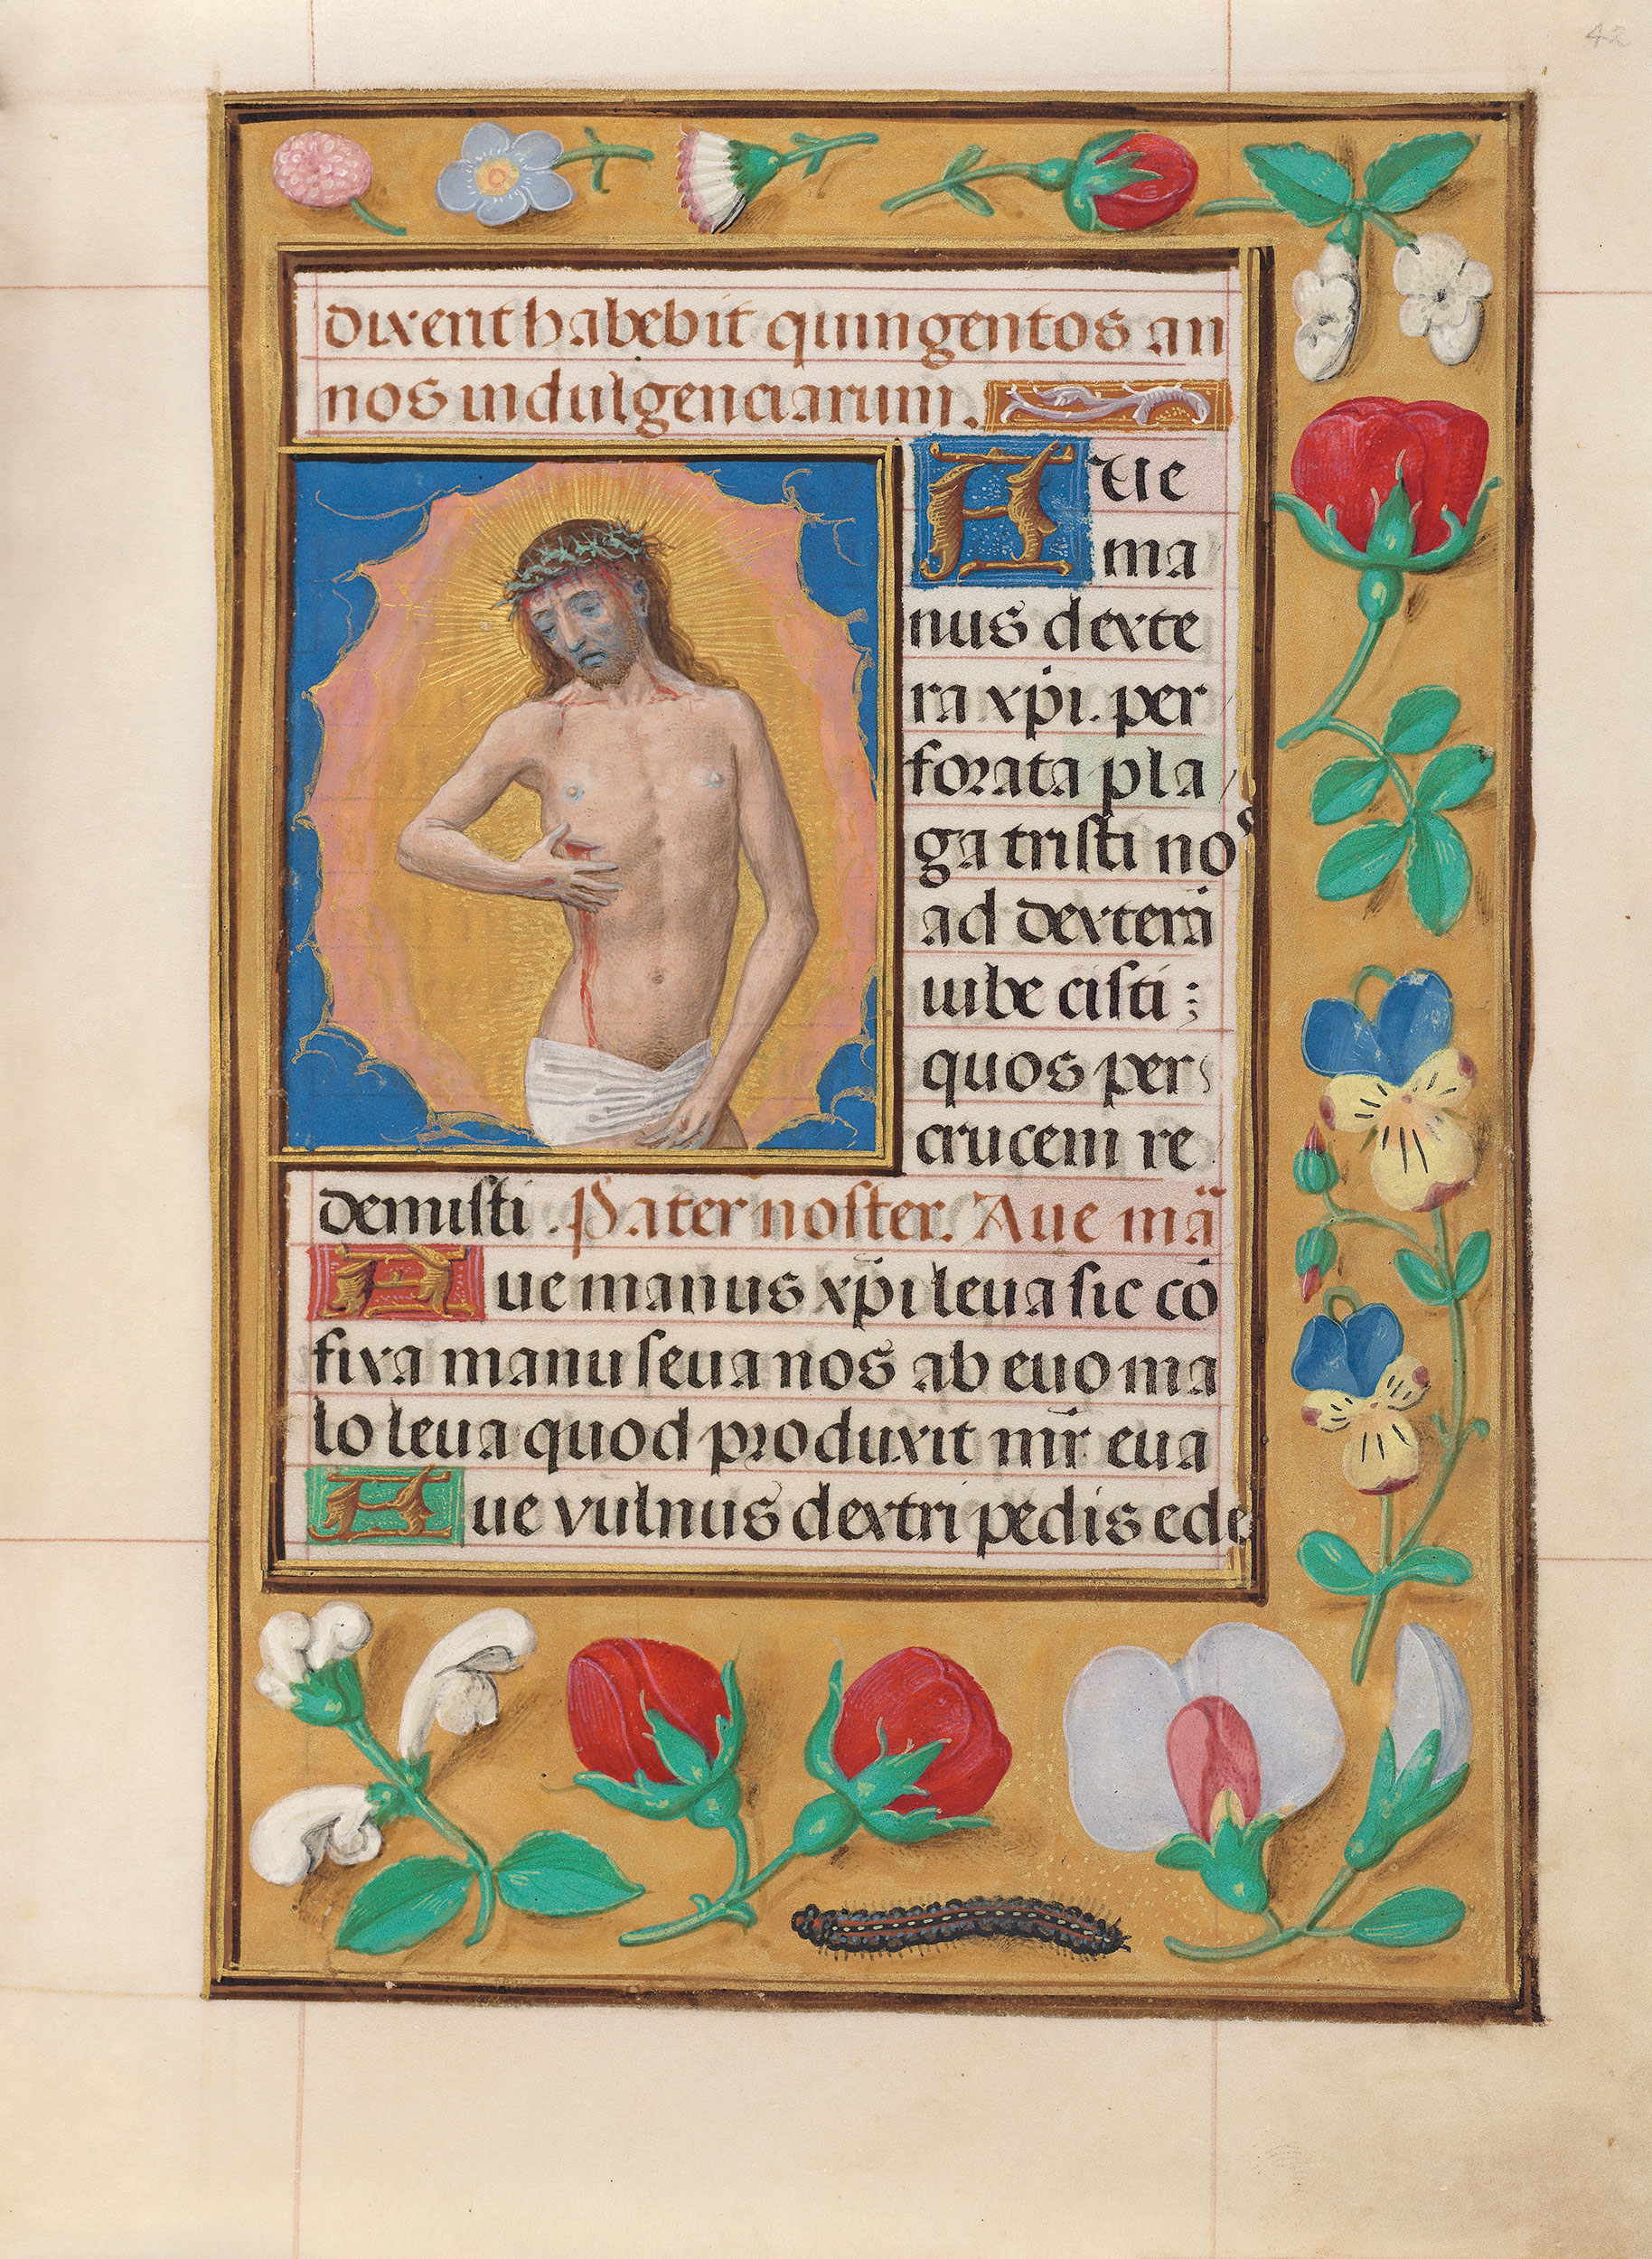 42
dixerit habebit quingentos an
nos indulgenciarum.
Aue
ma
nus dexte
ra xp̄i. per
forata pla
ga tristi nos
ad dexterā
iube cisti;
quos per
crucem re
demisti. Pater noster. Aue mā
Aue manus xp̄i leua sic cō
fixa manu seua nos ab euo ma
lo leua quod produxit mr̄ eua
Aue vulnus dextri pedis ede